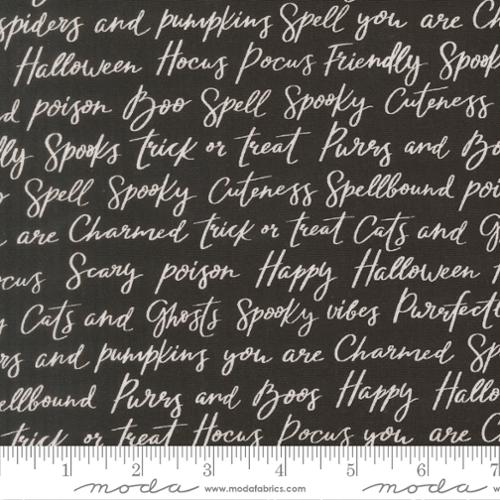 spiders and pumpkins Spell you are Ch
Halloween Hocus Pocus Friendly Spook
d poison Boo Spell Spooky Cuteness
lly Spooks trick or treat Purrs and Bo
Spell Spooky Cuteness Spellbound poi
are Charmed trick or treat Cats and G
ocus Scary poison Happy Halloween
y Cats and Ghosts Spooky vibes Purrfectl
rs and pumpkins you are Charmed Sp
ellbound Purrs and Boos Happy Hallo
trick or treat Hocus Pocus you are C
1 2 3 4 5 6 7
moda www.modafabrics.com moda www.modafabrics.com moda